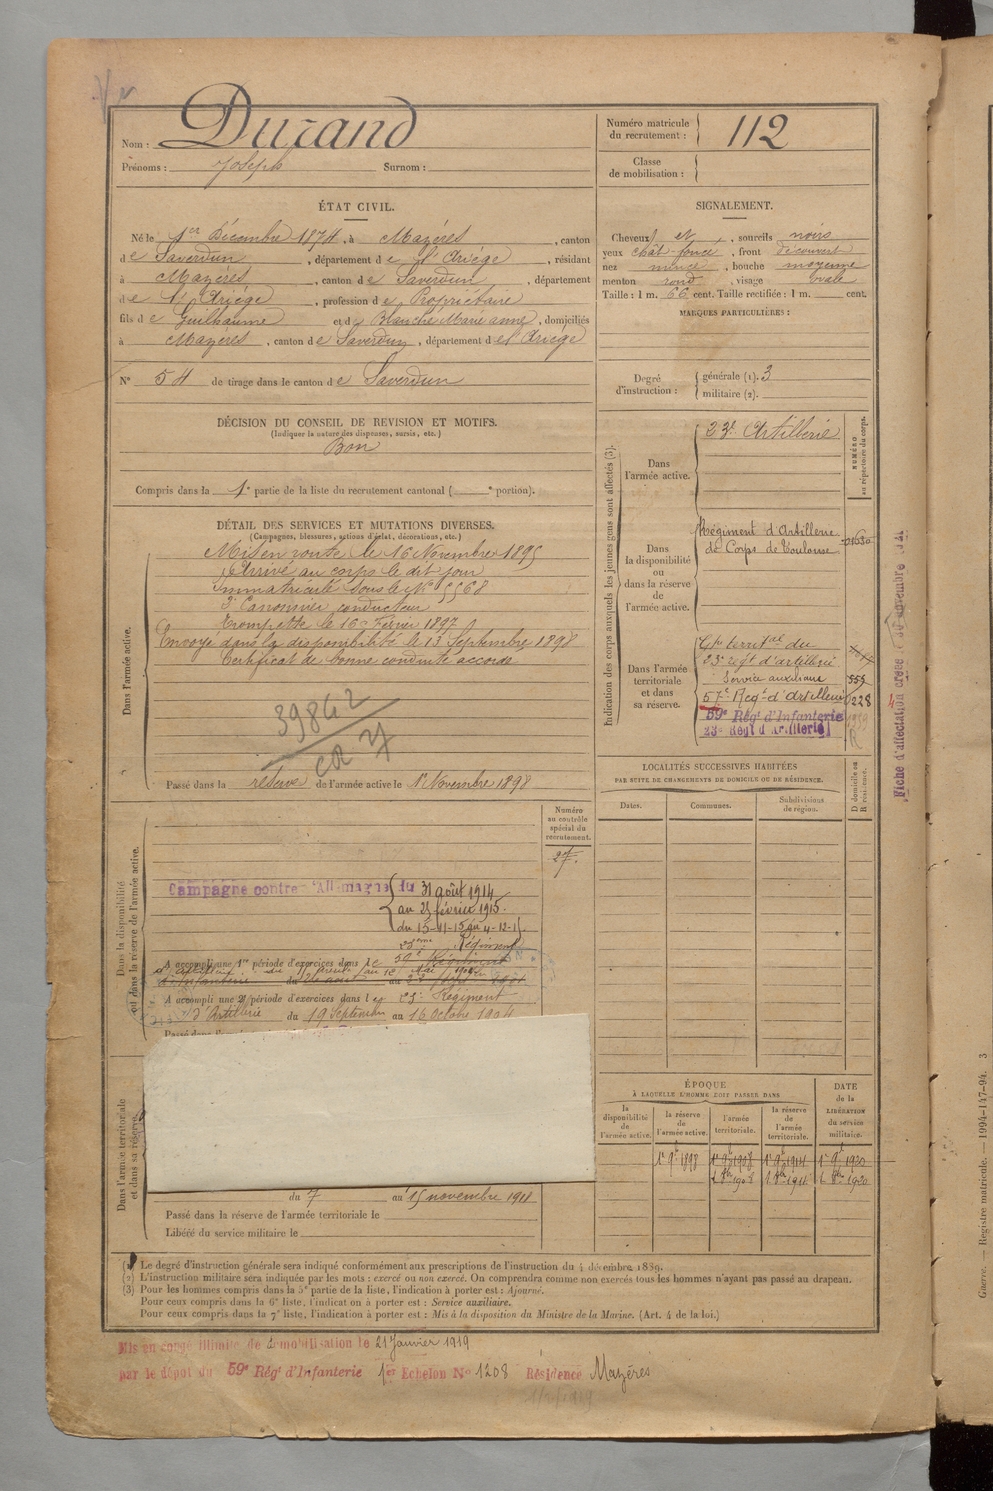 Nom : Durand
Prénoms : Joseph Surnom :
Numéro matricule du recrutement : 112
Classe de mobilisation :
ÉTAT CIVIL.
Né le 1er Décembre 1874, à Mazères, canton
de Saverdun, département de l'Ariège, résidant
à Mazères, canton de Saverdun, département
de l'Ariège, profession de Propriétaire
fils de Guilhaume et de Blanche Marie anne, domiciliés
à Mazères, canton de Saverdun, département de l'Ariège
N° 54 de tirage dans le canton de Saverdun
SIGNALEMENT.
Cheveux et, sourcils noirs
yeux chât. foncé, front découvert
nez mince, bouche moyenne
menton rond, visage ovale
Taille : 1 m. 66 cent. Taille rectifiée : 1 m. cent.
MARQUES PARTICULIÈRES :
Degré d'instruction :
générale (1). 3
militaire (2).
DÉCISION DU CONSEIL DE REVISION ET MOTIFS.
(Indiquer la nature des dispenses, sursis, etc.)
Bon
Compris dans la 1e partie de la liste du recrutement cantonal ( e portion).
DÉTAIL DES SERVICES ET MUTATIONS DIVERSES.
(Campagnes, blessures, actions d'éclat, décorations, etc.)
Dans l'armée active.
Mis en route le 16 Novembre 1895
Arrivé au corps le dit jour
Immatriculé sous le N° 5568
2e Canonnier conducteur
Trompette le 16 Février 1897
Envoyé dans la disponibilité le 13 Septembre 1898
Certificat de bonne conduite accordé
39842
Passé dans la réserve de l'armée active le 1er Novembre 1898
Indication des corps auxquels les jeunes gens sont affectés (3).
NUMÉRO au répertoire du corps.
Dans l'armée active.
23e Artillerie
Dans la disponibilité ou dans la réserve de l'armée active.
Régiment d'Artillerie
de Corps de Toulouse
Dans l'armée territoriale et dans sa réserve.
Gpe territal du
23e régt d'artillerie
Service auxiliaire 555
57e Regt d'Artillerie 228
59e Régt d'Infanterie
23e Regt d'Artillerie
Fiche d'affectation créée le 30 novembre
LOCALITÉS SUCCESSIVES HABITÉES
PAR SUITE DE CHANGEMENTS DE DOMICILE OU DE RÉSIDENCE.
Dates. Communes. Subdivisions de région.
D domicile ou R résidence.
Numéro au contrôle spécial du recrutement.
27.
Dans la disponibilité ou dans la réserve de l'armée active.
Campagne contre l'Allemagne du 31 août 1914
au 25 février 1915.
du 15-11-15 au 4-12-15
23ème Régiment
A accompli une 1re période d'exercices dans le 59e Régiment
A accompli une 2e période d'exercices dans le 23e Régiment
d'Artillerie du 19 Septembre au 16 Octobre 1904
Dans l'armée territoriale et dans sa réserve.
du 7 au 15 novembre 1911
Passé dans la réserve de l'armée territoriale le
Libéré du service militaire le
ÉPOQUE
À LAQUELLE L'HOMME DOIT PASSER DANS
la disponibilité de l'armée active.
la réserve de l'armée active.
l'armée territoriale.
la réserve de l'armée territoriale.
DATE de la LIBÉRATION du service militaire.
1er 9bre 1898 1er 9bre 1908 1er 9bre 1914 1er 9bre 1920
1 8bre 1908 1 8bre 1914 1 8bre 1920
(1) Le degré d'instruction générale sera indiqué conformément aux prescriptions de l'instruction du 4 décembre 1889.
(2) L'instruction militaire sera indiquée par les mots : exercé ou non exercé. On comprendra comme non exercés tous les hommes n'ayant pas passé au drapeau.
(3) Pour les hommes compris dans la 5e partie de la liste, l'indication à porter est : Ajourné.
Pour ceux compris dans la 6e liste, l'indication à porter est : Service auxiliaire.
Pour ceux compris dans la 7e liste, l'indication à porter est : Mis à la disposition du Ministre de la Marine. (Art. 4 de la loi.)
Mis en congé illimité de démobilisation le 21 Janvier 1919
par le dépôt du 59e Régt d'Infanterie 1er Echelon N° 1208 Résidence Mazères
Guerre. — Registre matricule. — 1994-147-94. 3